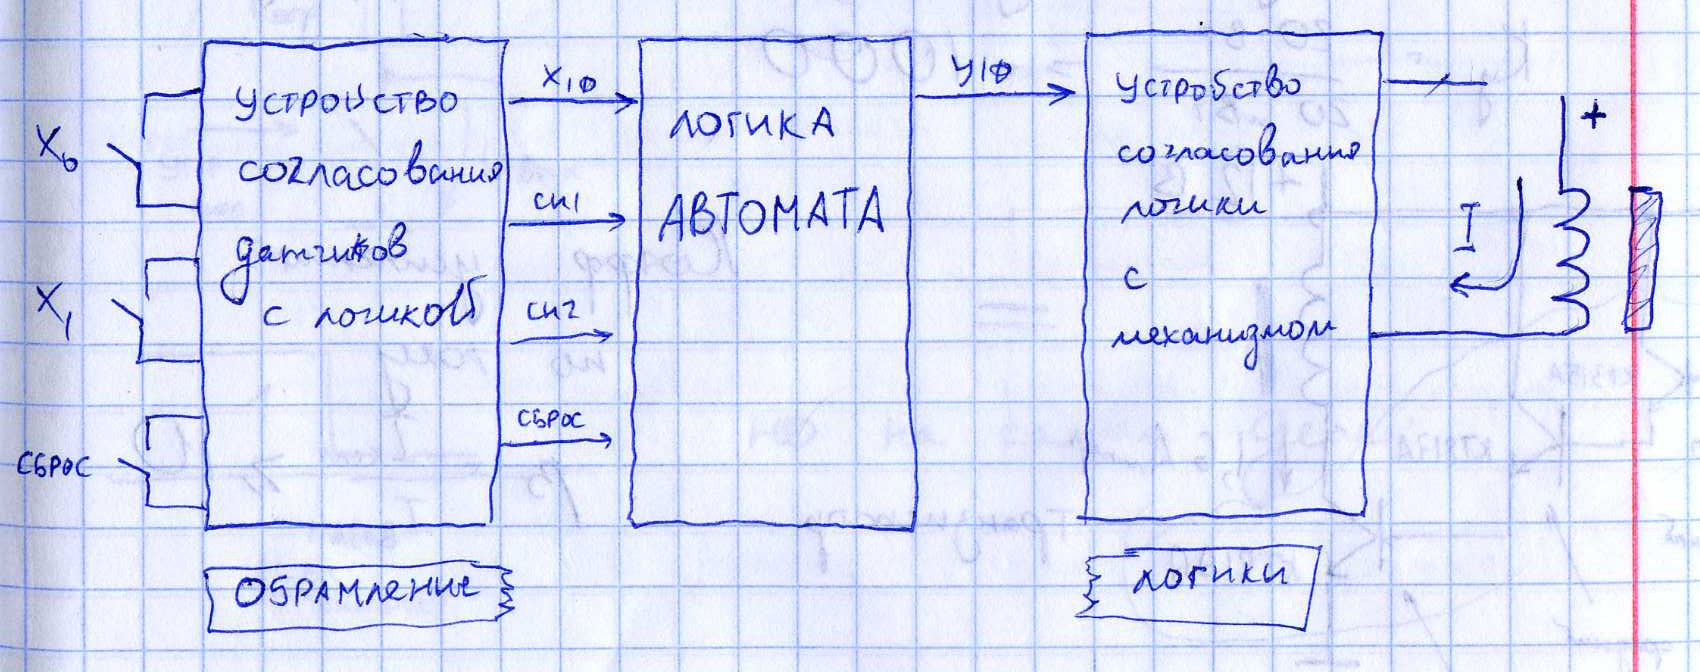 X₀
X₁
СБРОС
устройство
согласования
датчиков
с логикой
X₁Ф
СИ1
СИ2
СБРОС
ЛОГИКА
АВТОМАТА
У1Ф
устройство
согласования
логики
с
механизмом
+
I
ОБРАМЛЕНИЕ
ЛОГИКИ